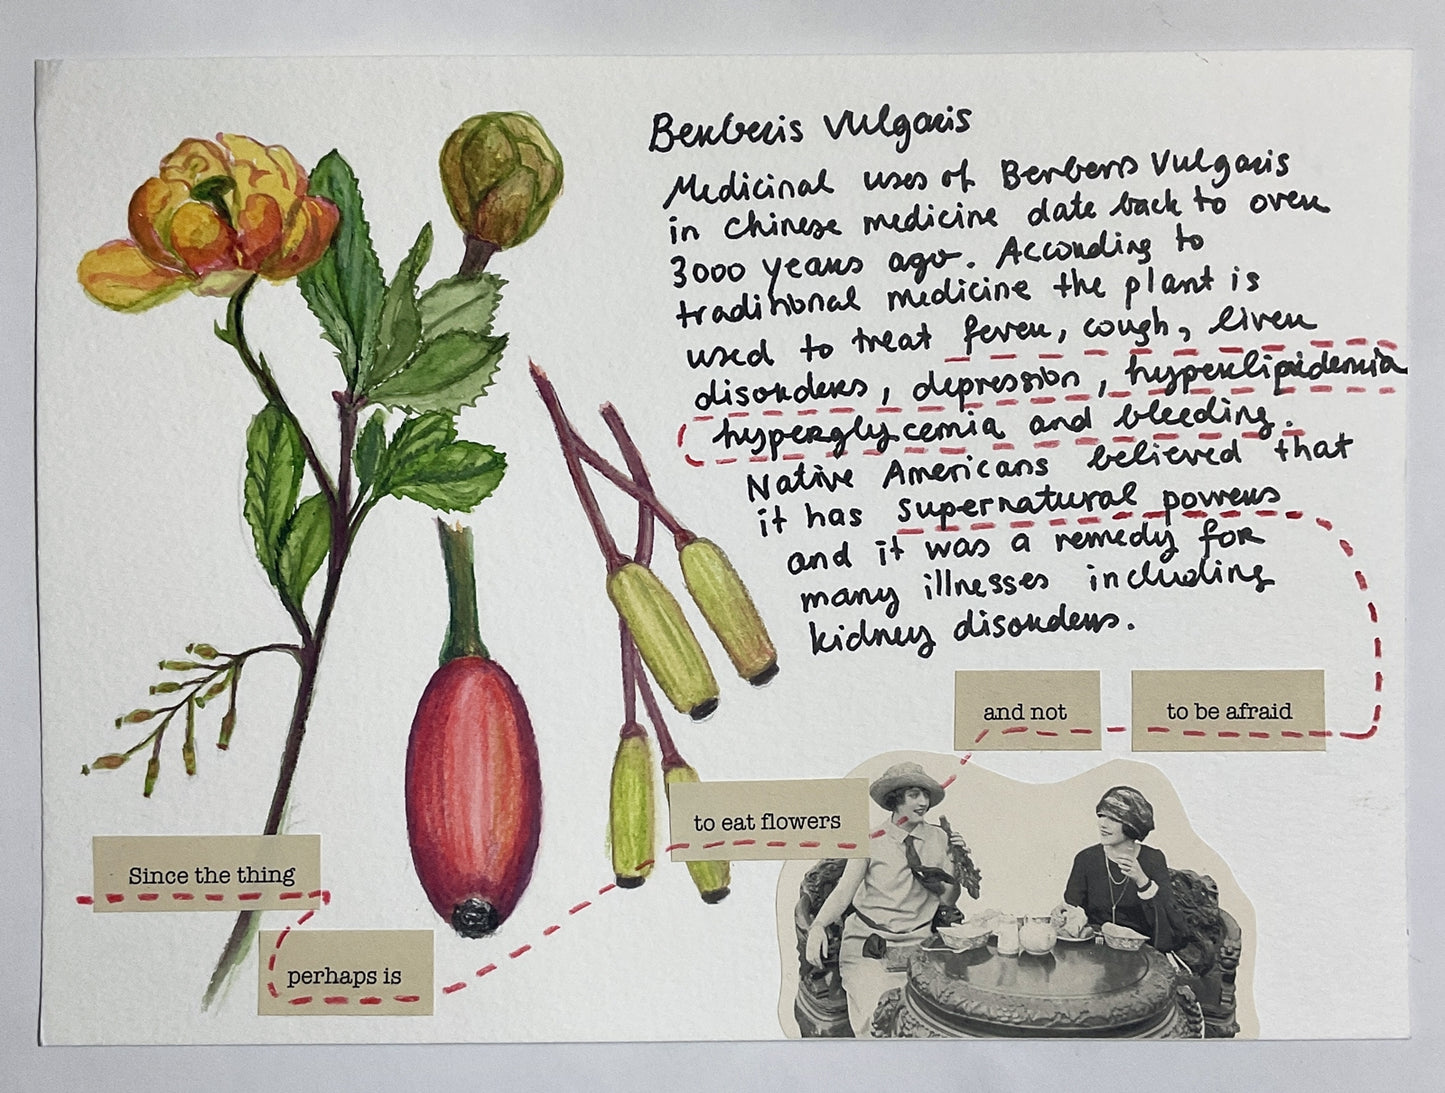 Berberis vulgaris
Medicinal uses of Berberis vulgaris
in Chinese medicine date back to over
3000 years ago. According to
traditional medicine the plant is
used to treat fever, cough, liver
disorders, depression, hyperlipidemia
hyperglycemia and bleeding.
Native Americans believed that
it has supernatural powers
and it was a remedy for
many illnesses including
kidney disorders.
Since the thing
perhaps is
to eat flowers
and not
to be afraid